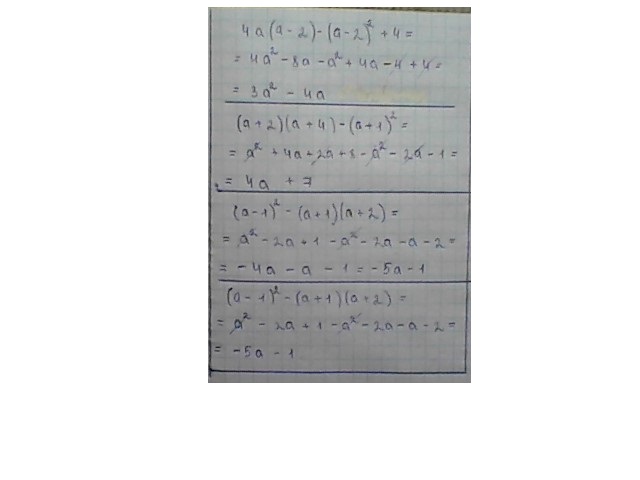 4a(a-2)-(a-2)²+4=
= 4a² - 8a - a² + 4a - 4 + 4 =
= 3a² - 4a
(a+2)(a+4)-(a+1)² =
= a² + 4a + 2a + 8 - a² - 2a - 1 =
= 4a + 7
(a-1)² - (a+1)(a+2) =
= a² - 2a + 1 - a² - 2a - a - 2 =
= - 4a - a - 1 = - 5a - 1
(a-1)² - (a+1)(a+2) =
= a² - 2a + 1 - a² - 2a - a - 2 =
= -5a - 1